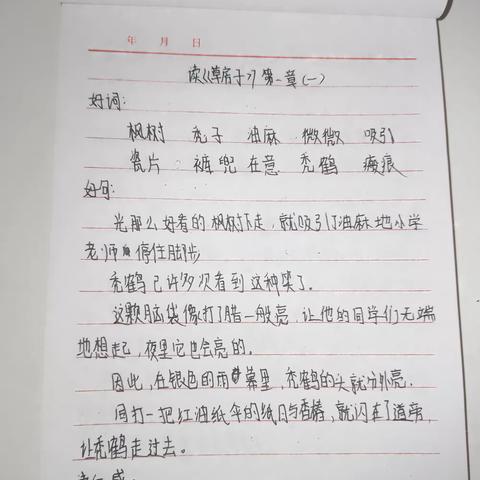 年 月 日
读《草房子》第一章(一)
好词:
枫树 秃子 油麻 微微 吸引
瓷片 裤兜 在意 秃鹤 瘢痕
好句:
光那么好看的枫树下走,就吸引了油麻地小学
老师停住脚步
秃鹤已许多次看到这种笑了。
这颗脑袋像打了腊一般亮,让他的同学们无端
地想起,夜里它也会亮的。
因此,在银色的雨幕里,秃鹤的头就分外亮。
同打一把红油纸伞的纸月与香椿,就闪在了道旁,
让秃鹤走过去。